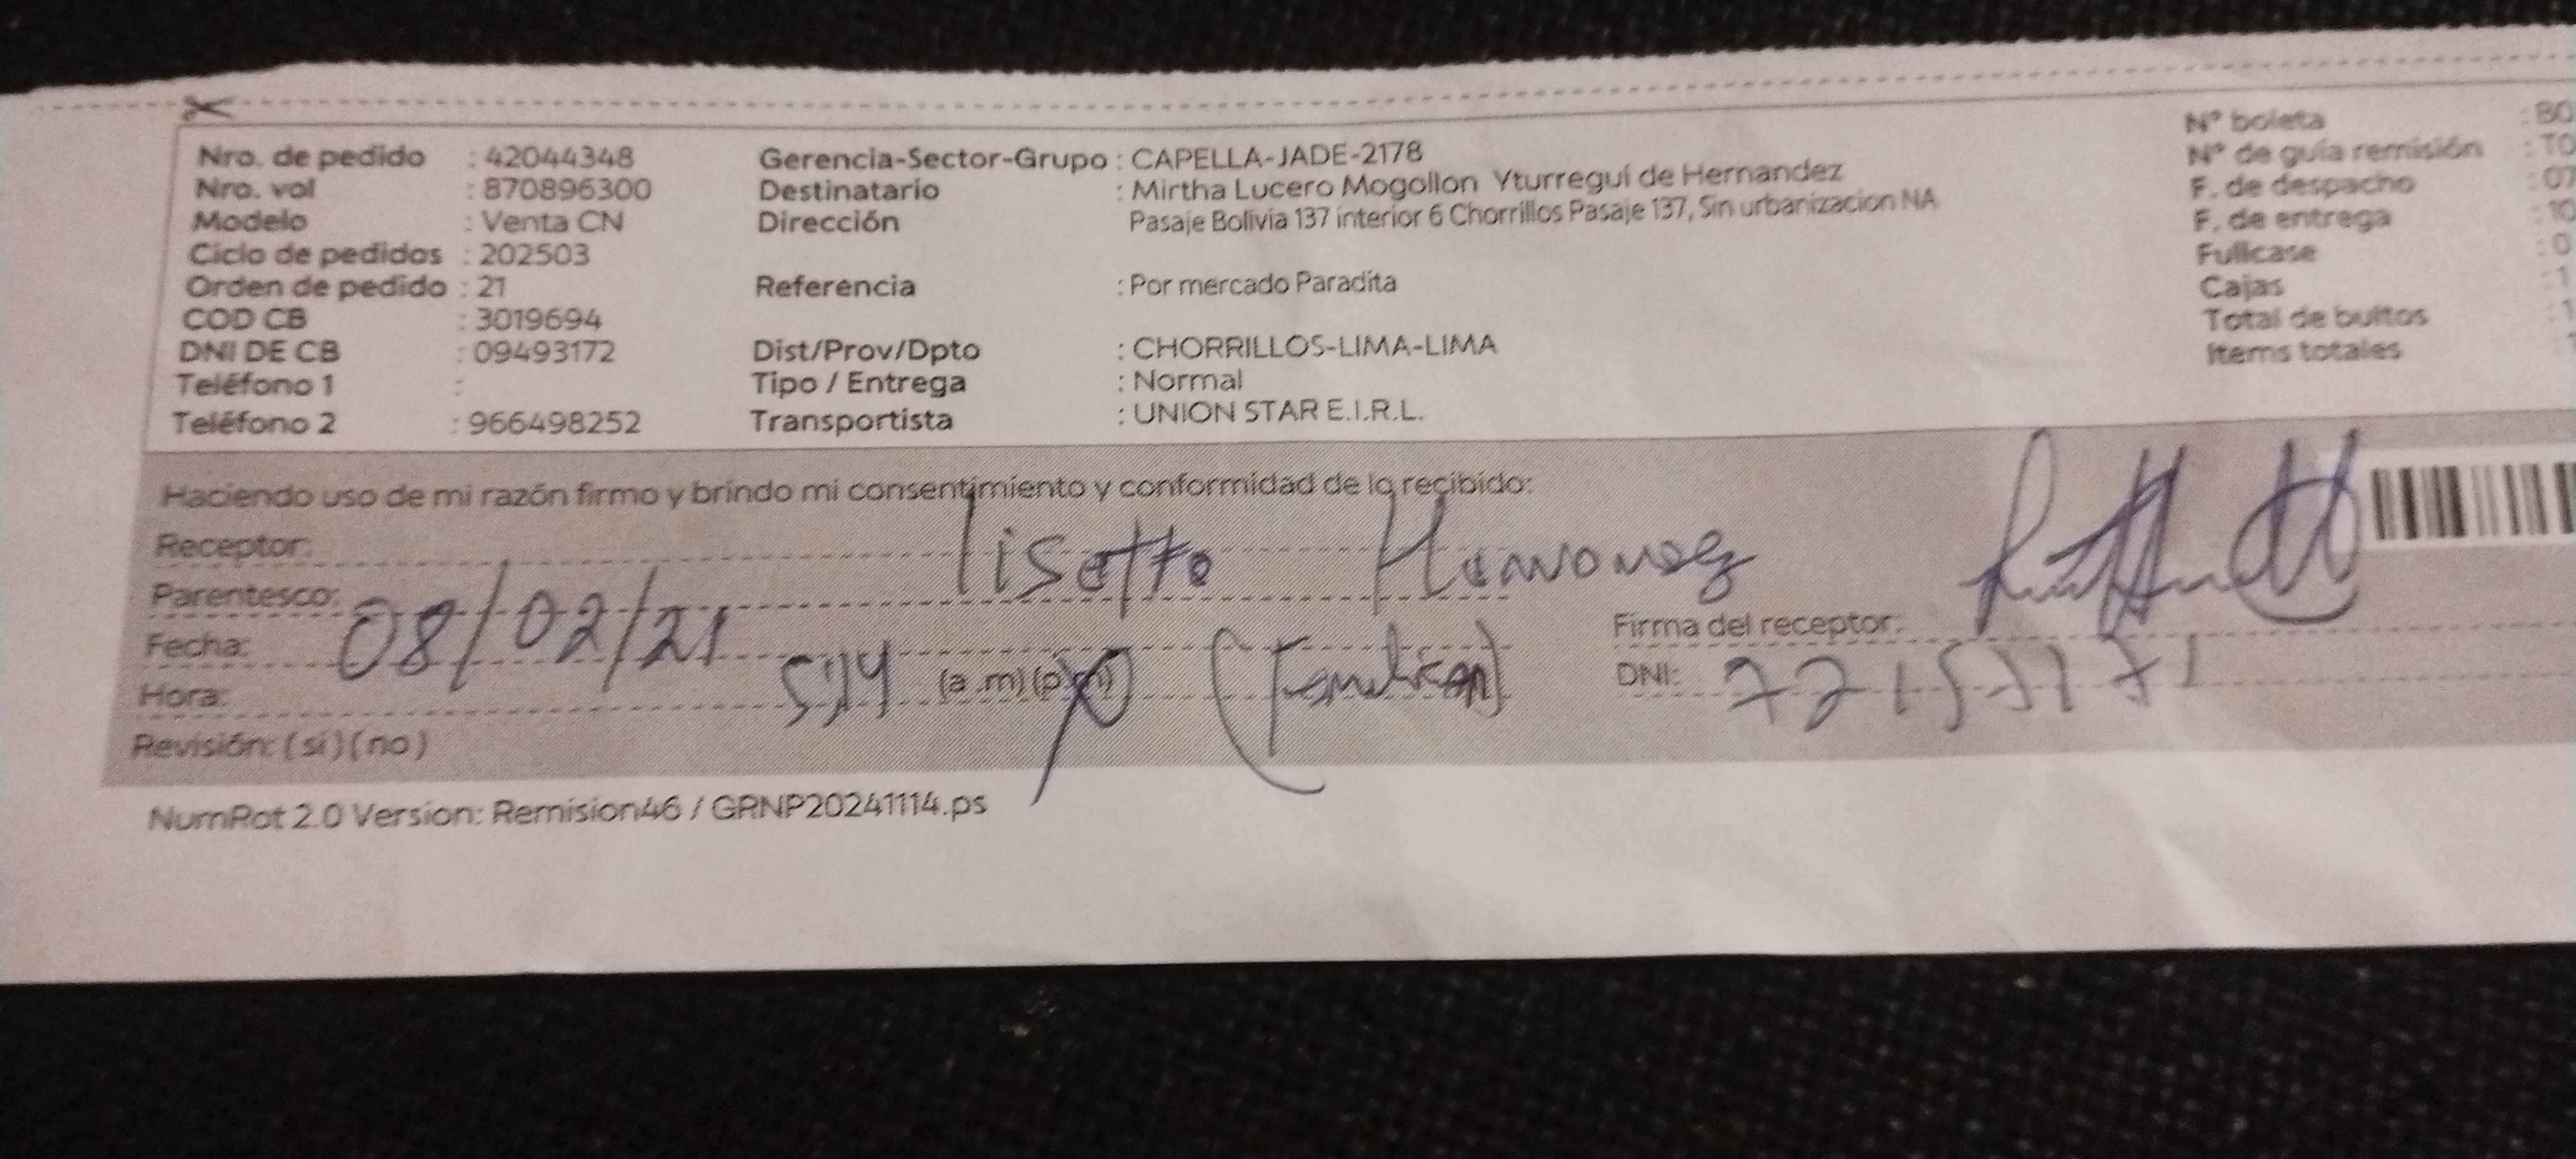 Nro. de pedido : 42044348
Nro. vol : 870896300
Modelo : Venta CN
Ciclo de pedidos : 202503
Orden de pedido : 21
COD CB : 3019694
DNI DE CB : 09493172
Teléfono 1 :
Teléfono 2 : 966498252
Gerencia-Sector-Grupo : CAPELLA-JADE-2178
Destinatario : Mirtha Lucero Mogollon Yturregui de Hernandez
Dirección Pasaje Bolivia 137 interior 6 Chorrillos Pasaje 137, Sin urbanizacion NA
Referencia : Por mercado Paradita
Dist/Prov/Dpto : CHORRILLOS-LIMA-LIMA
Tipo / Entrega : Normal
Transportista : UNION STAR E.I.R.L.
N° boleta : B0
N° de guía remisión : T0
F. de despacho : 07
F. de entrega : 10
Fullcase : 0
Cajas : 1
Total de bultos : 1
Items totales
Haciendo uso de mi razón firmo y brindo mi consentimiento y conformidad de lo recibido:
Receptor:
Parentesco:
Fecha: 08/02/21
Hora: (a .m) (p.m)
Revisión: (si) (no)
Firma del receptor:
DNI:
NumRot 2.0 Version: Remision46 / GRNP20241114.ps